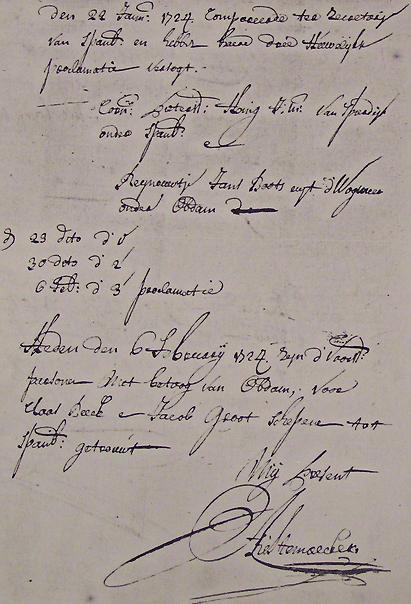 den 22 Janr: 1724 Compareerde ter Secretarij
van Spanb: en hebben haer drie Houwelijk
proclamatie versogt.
Corn: Pieters: Jong J:m: van Spierdijk
onder Spanb:
e
Reijnoutje Jans Boots uijt d'Wogmeer
onder Obdam
23 dito d' 1
30 dito d' 2
6 Feb: d' 3 proclamatie
Heden den 6 February 1724 zijn d' voorst:
persoone Met betoog van Obdam, voor
Claas Beeck e Jacob Groot Schepene tot
Spanb: getrouwt
Mij Present